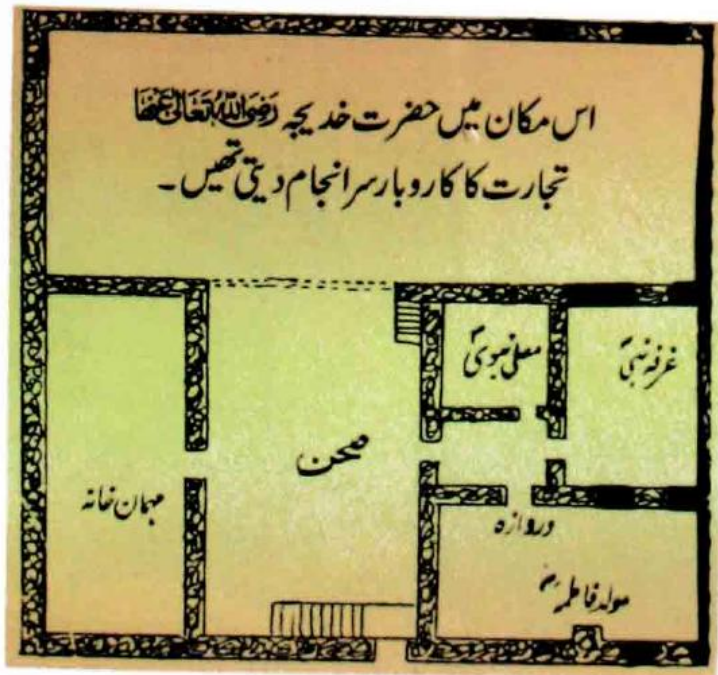 اس مکان میں حضرت خدیجہ رَضِیَ اللّٰهُ تَعَالٰی عَنْهَا
تجارت کا کاروبار سرانجام دیتی تھیں۔
مصلیٰ نبویؐ
غرفہ نبیؐ
صحن
مہمان خانہ
دروازہ
مولد فاطمہؓ